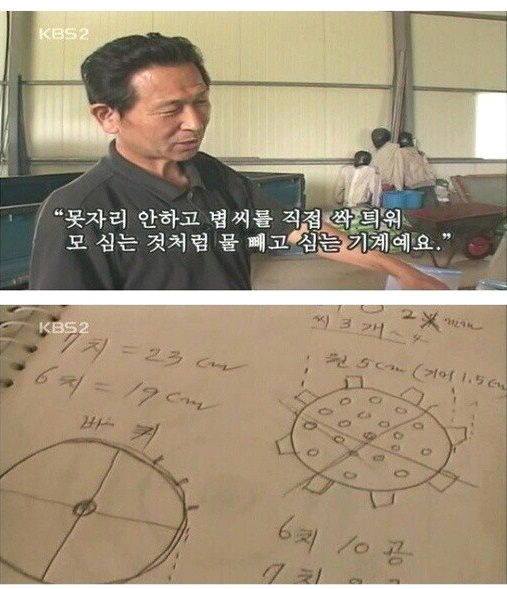 KBS2
“못자리 안하고 볍씨를 직접 싹 틔워
모 심는 것처럼 물 빼고 심는 기계예요.”
KBS2
7치 = 23 cm
6치 = 19 cm
바퀴
씨 3개~4
원 5cm (기어 1.5cm
6치 10공
7치